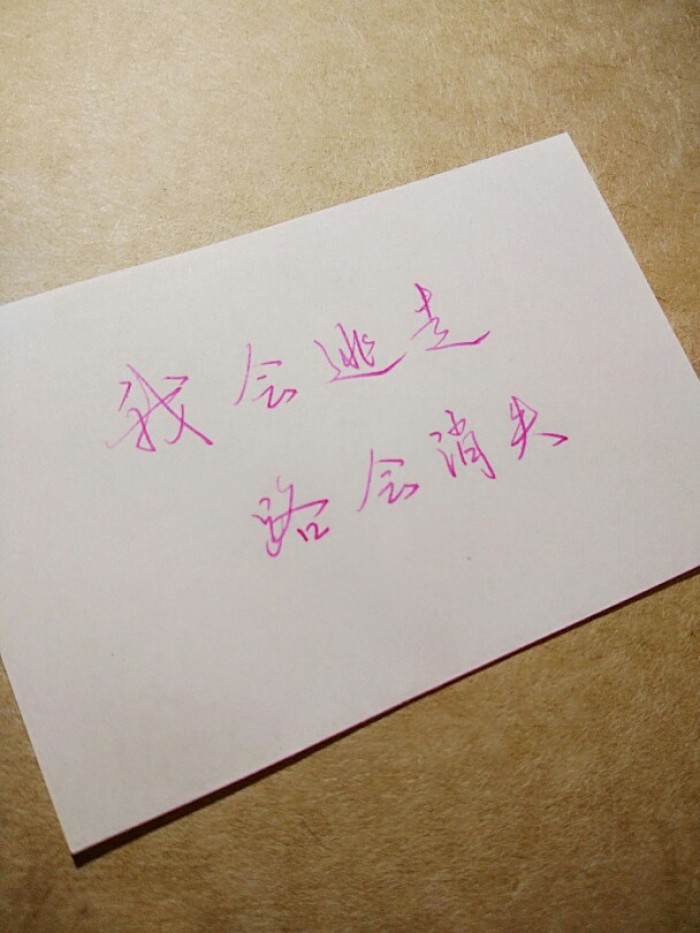 我会逃走
路会消失